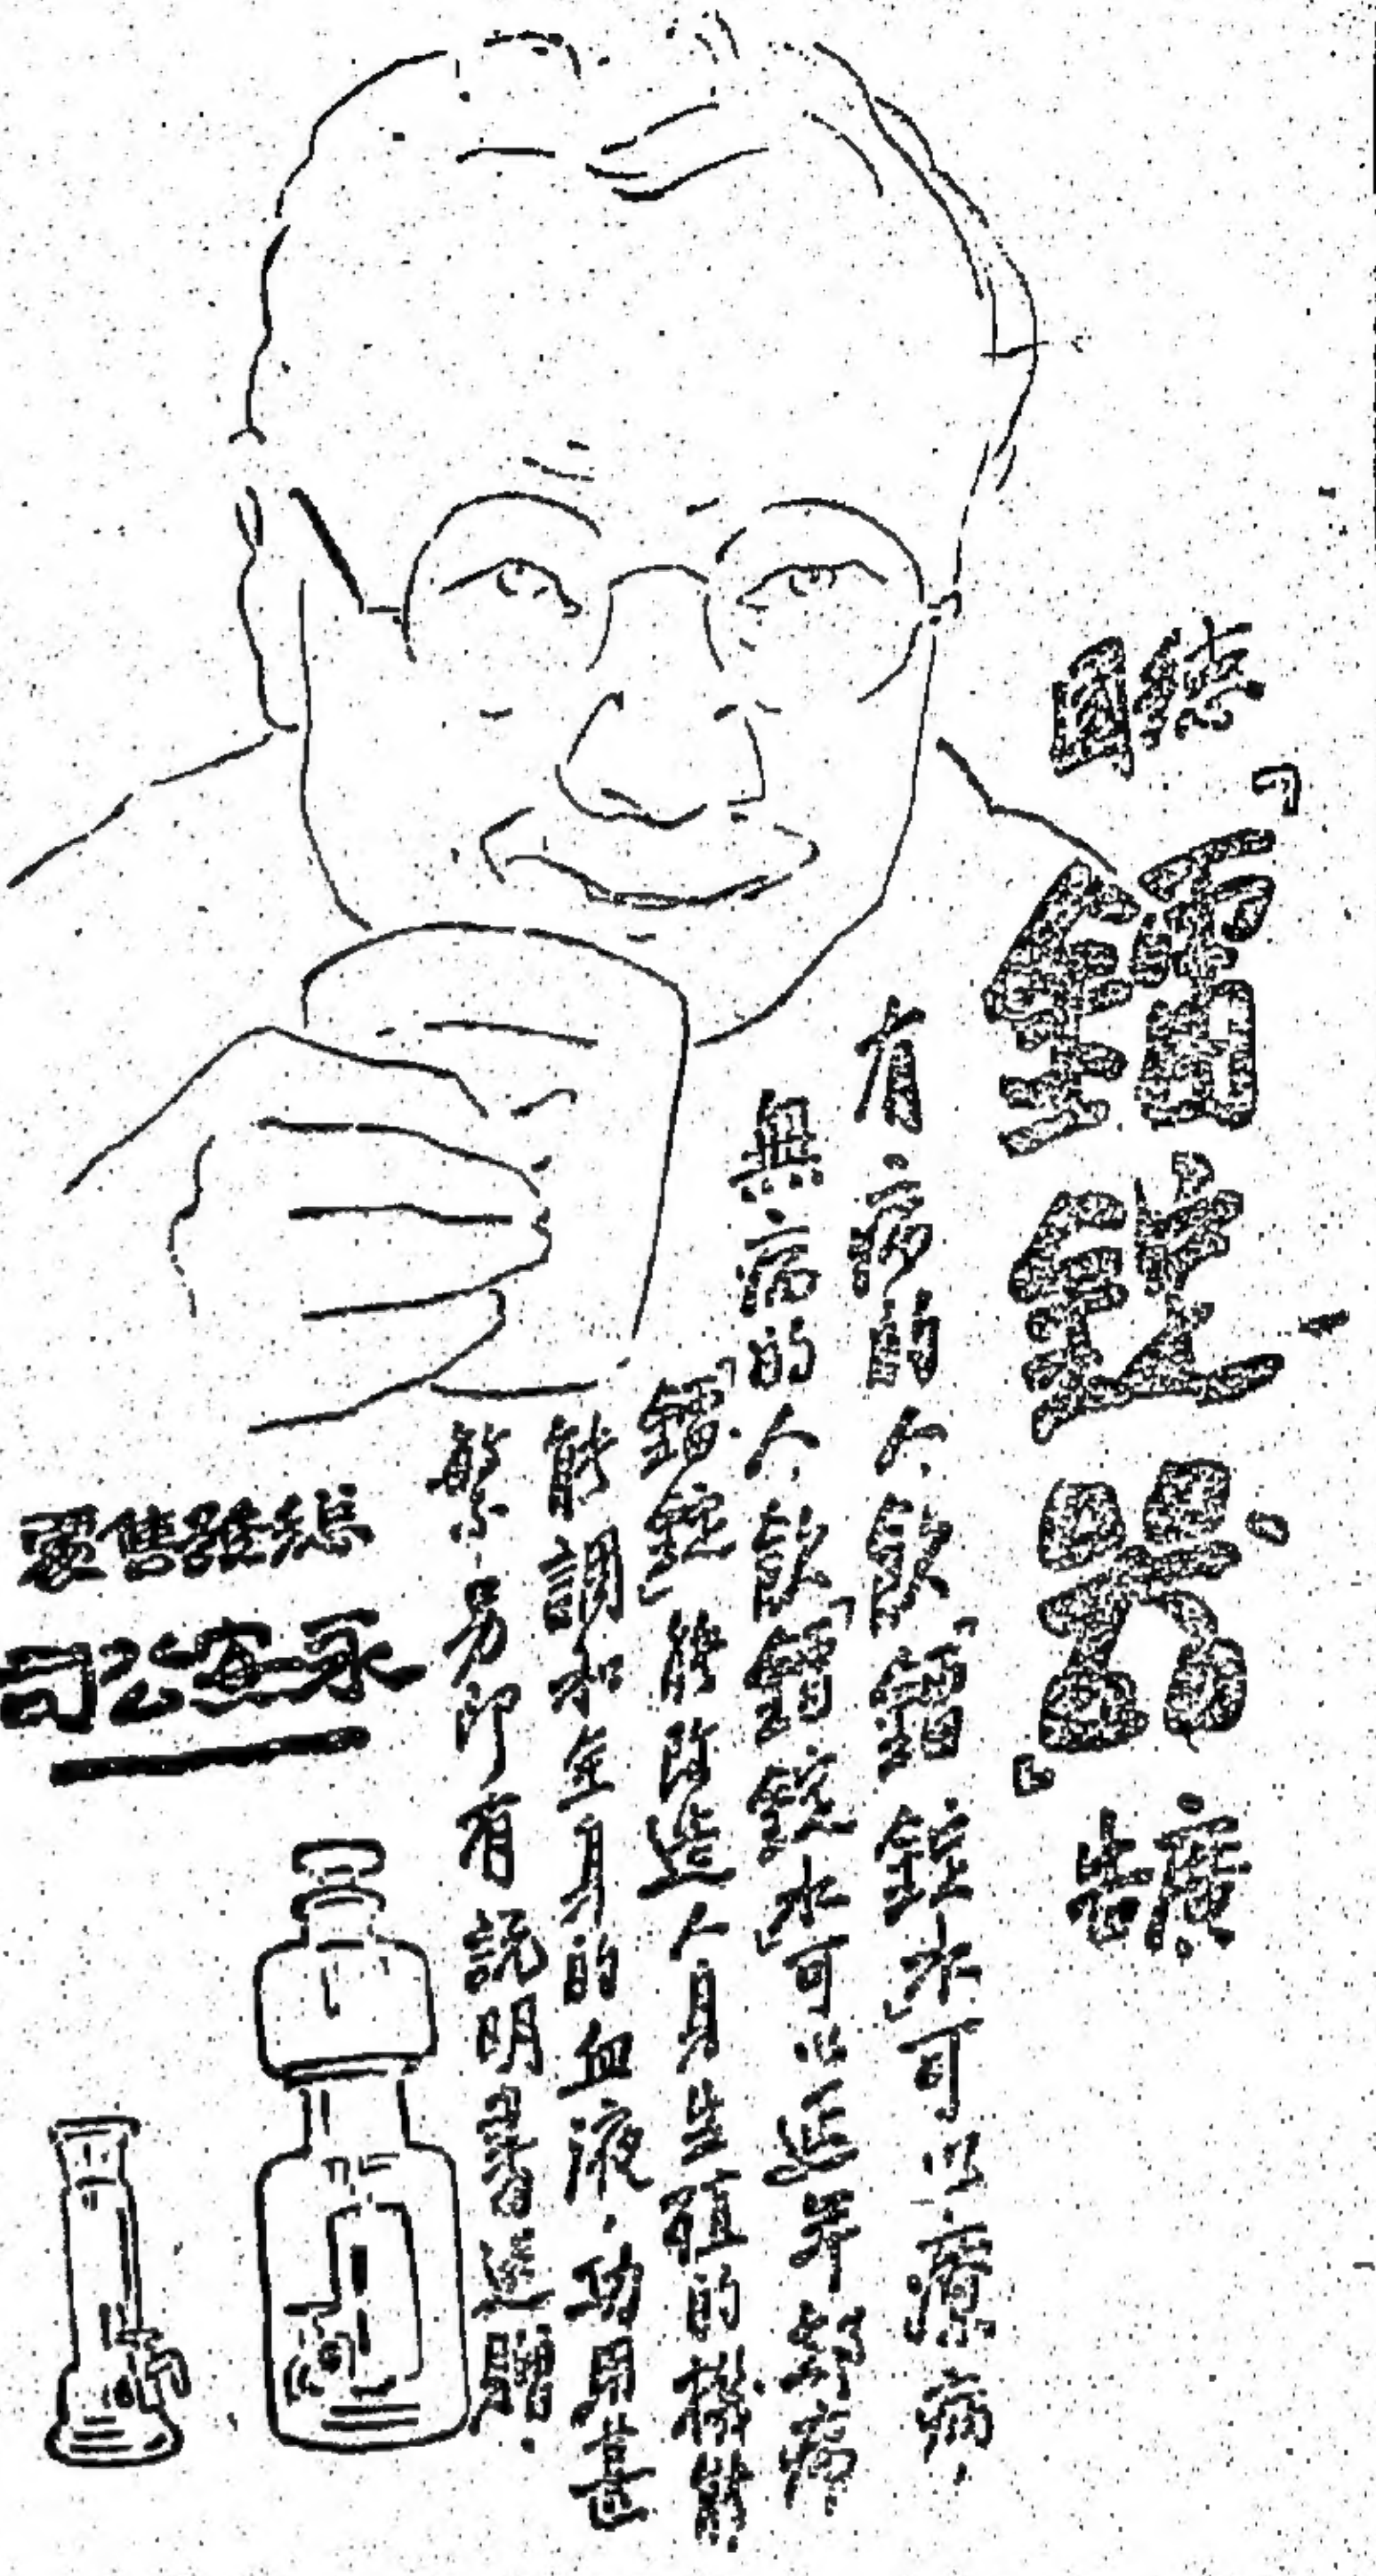 德國
「鐳錠器」
廣告
有病的人飲「鐳錠水」可以療病.
無病的人飲「鐳錠水」可以延年卻病
「鐳錠」能改造人身生殖的機能
能調和全身的血液.功用甚
繁.另印有說明書送贈.
總發售處
永安公司